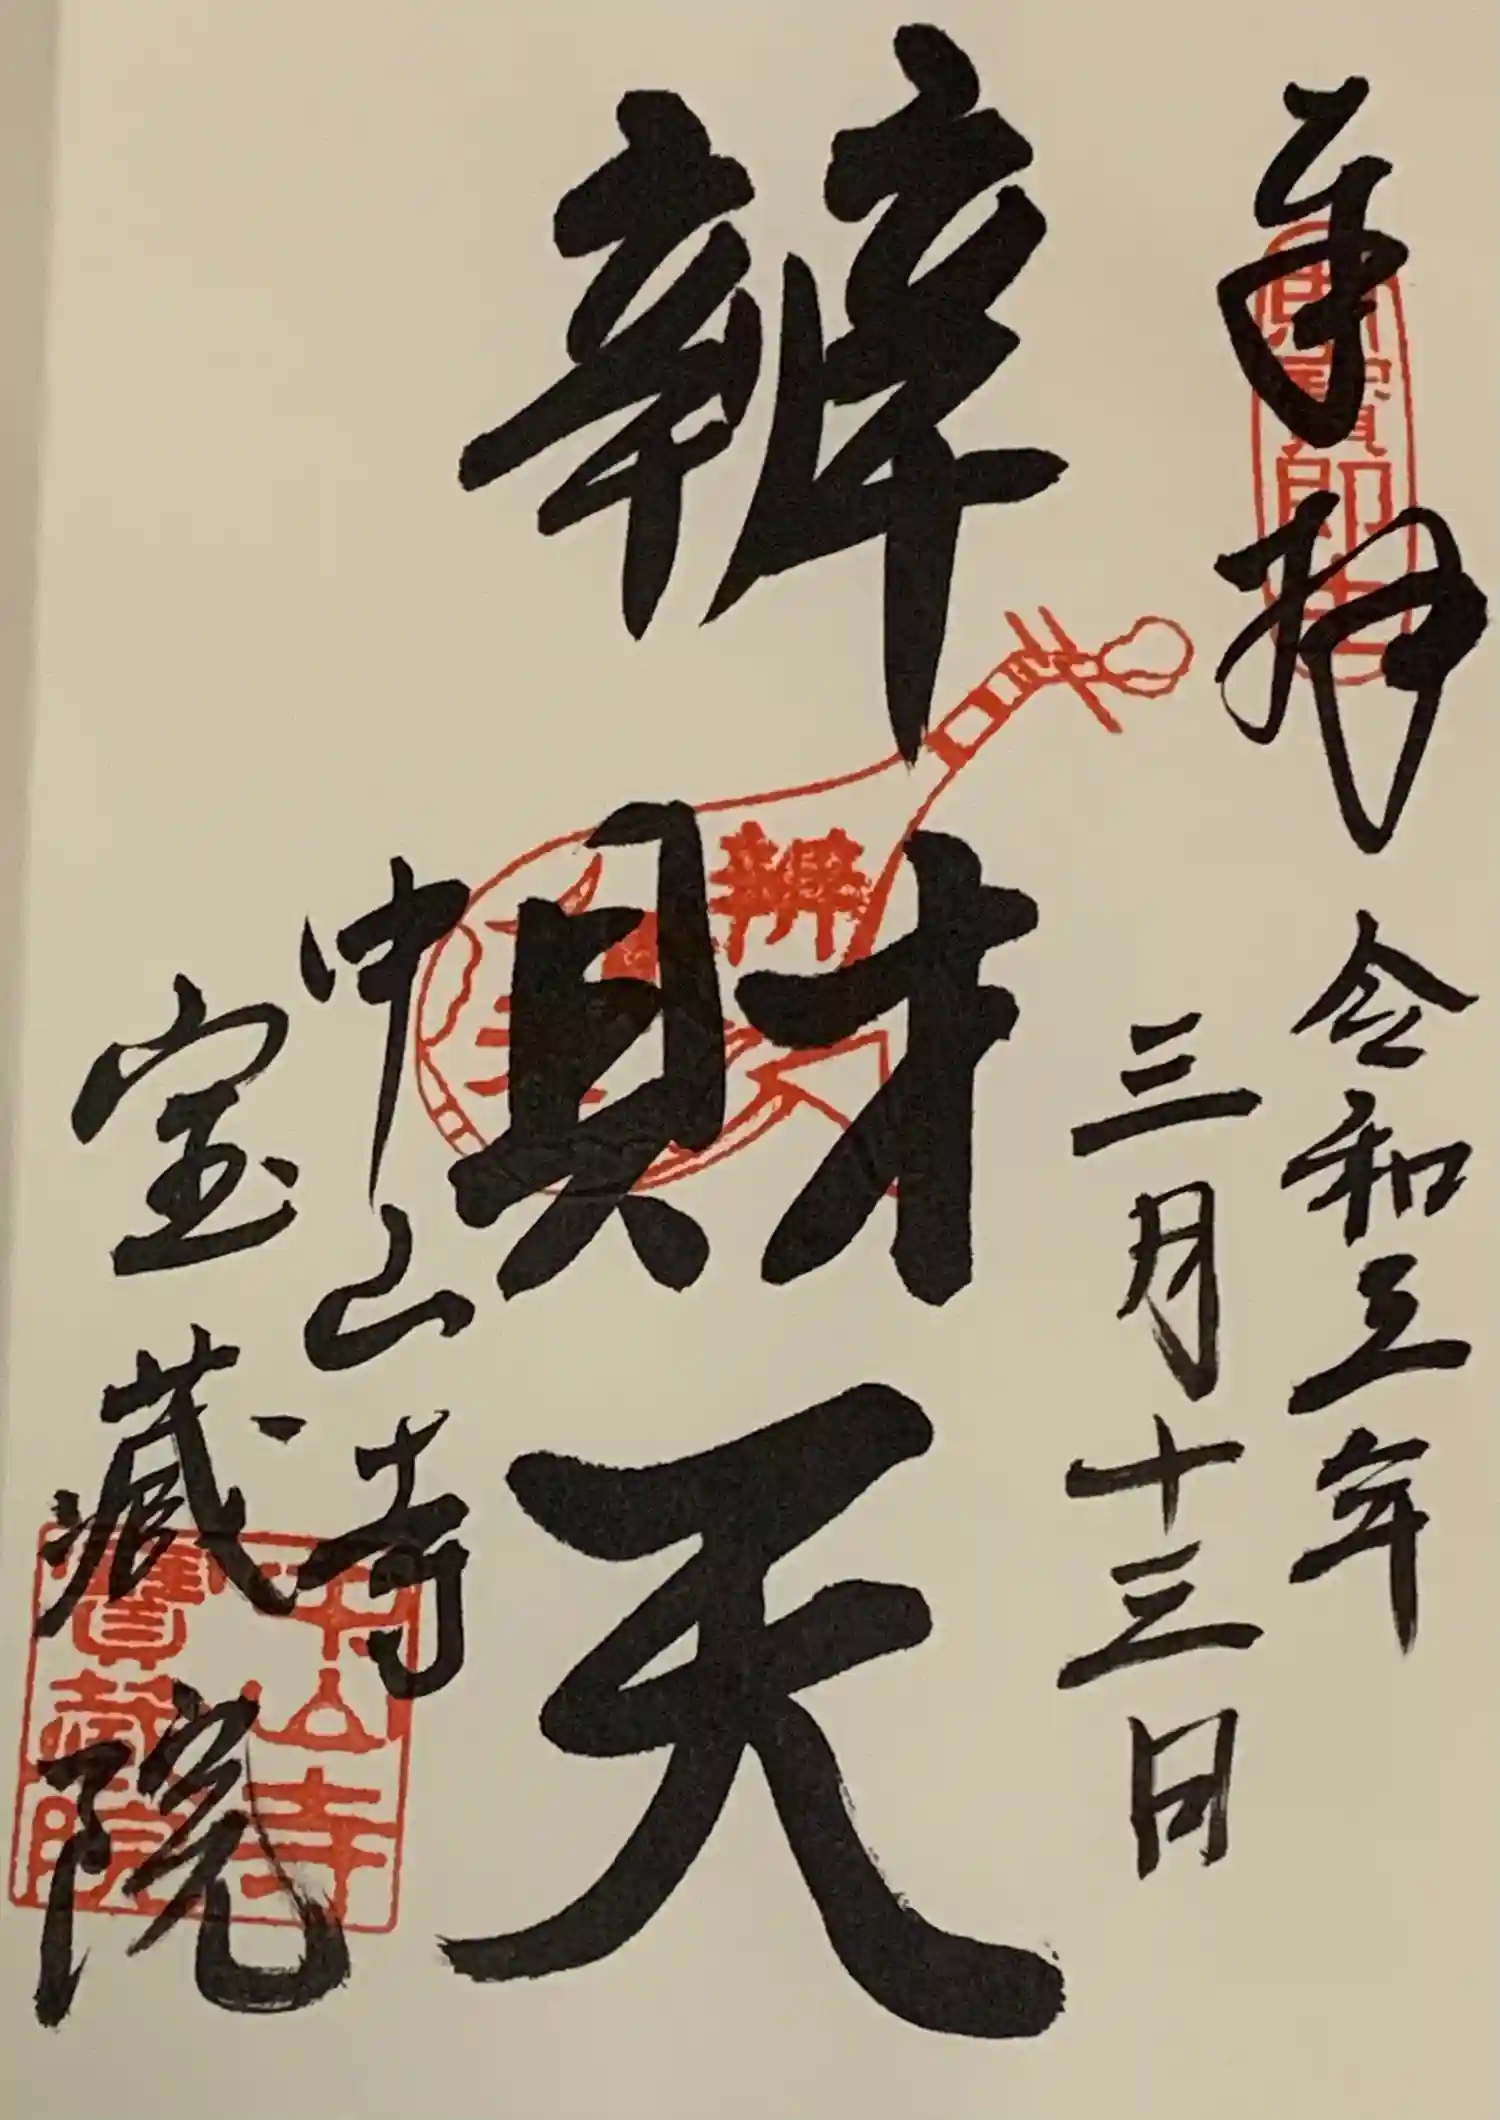 奉拝
令和三年
三月十三日
辨財天
中山寺
宝蔵院
辨
中山寺
寶蔵院